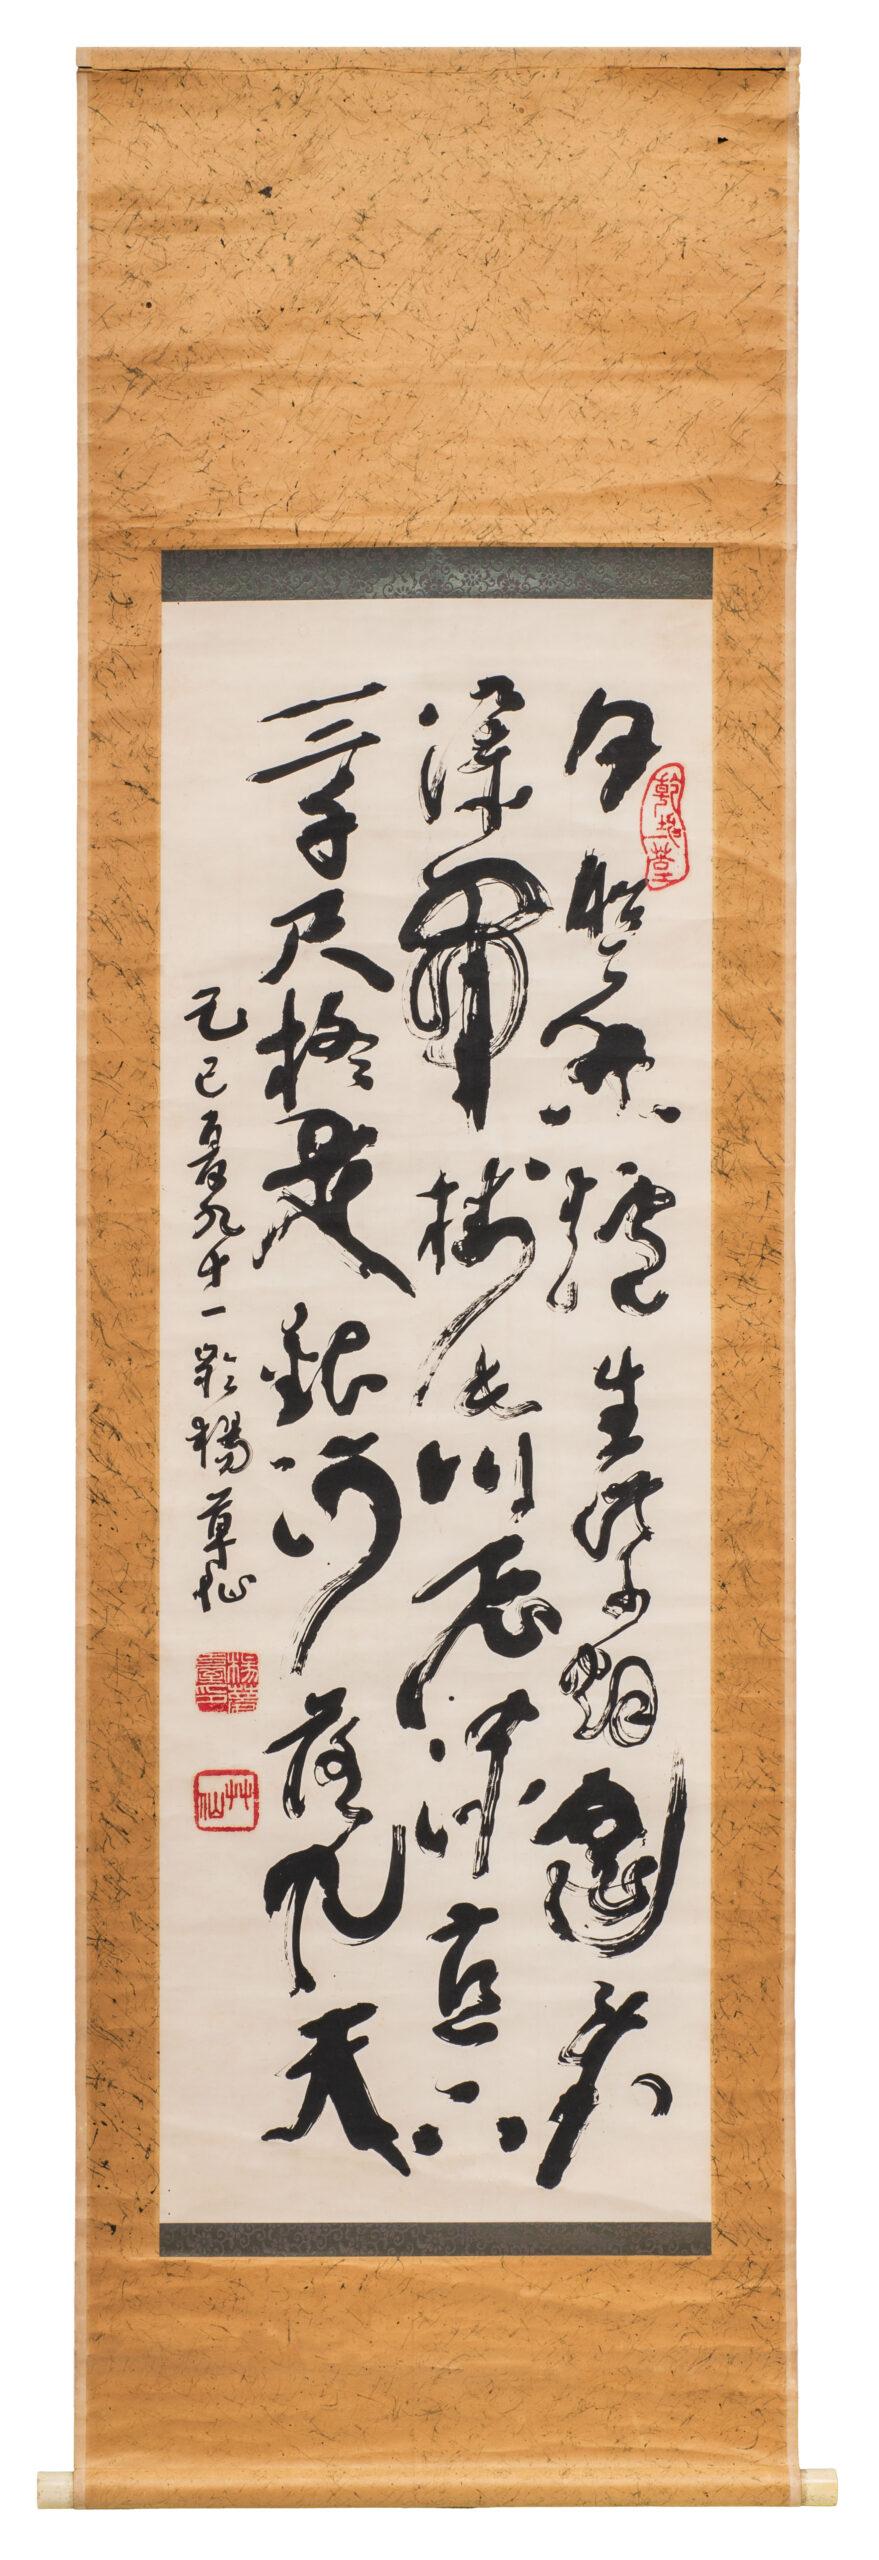 日照香爐生紫煙遙看
瀑布掛長川飛流直下
三千尺疑是銀河落九天
己巳夏九十一齡楊草仙
艸仙